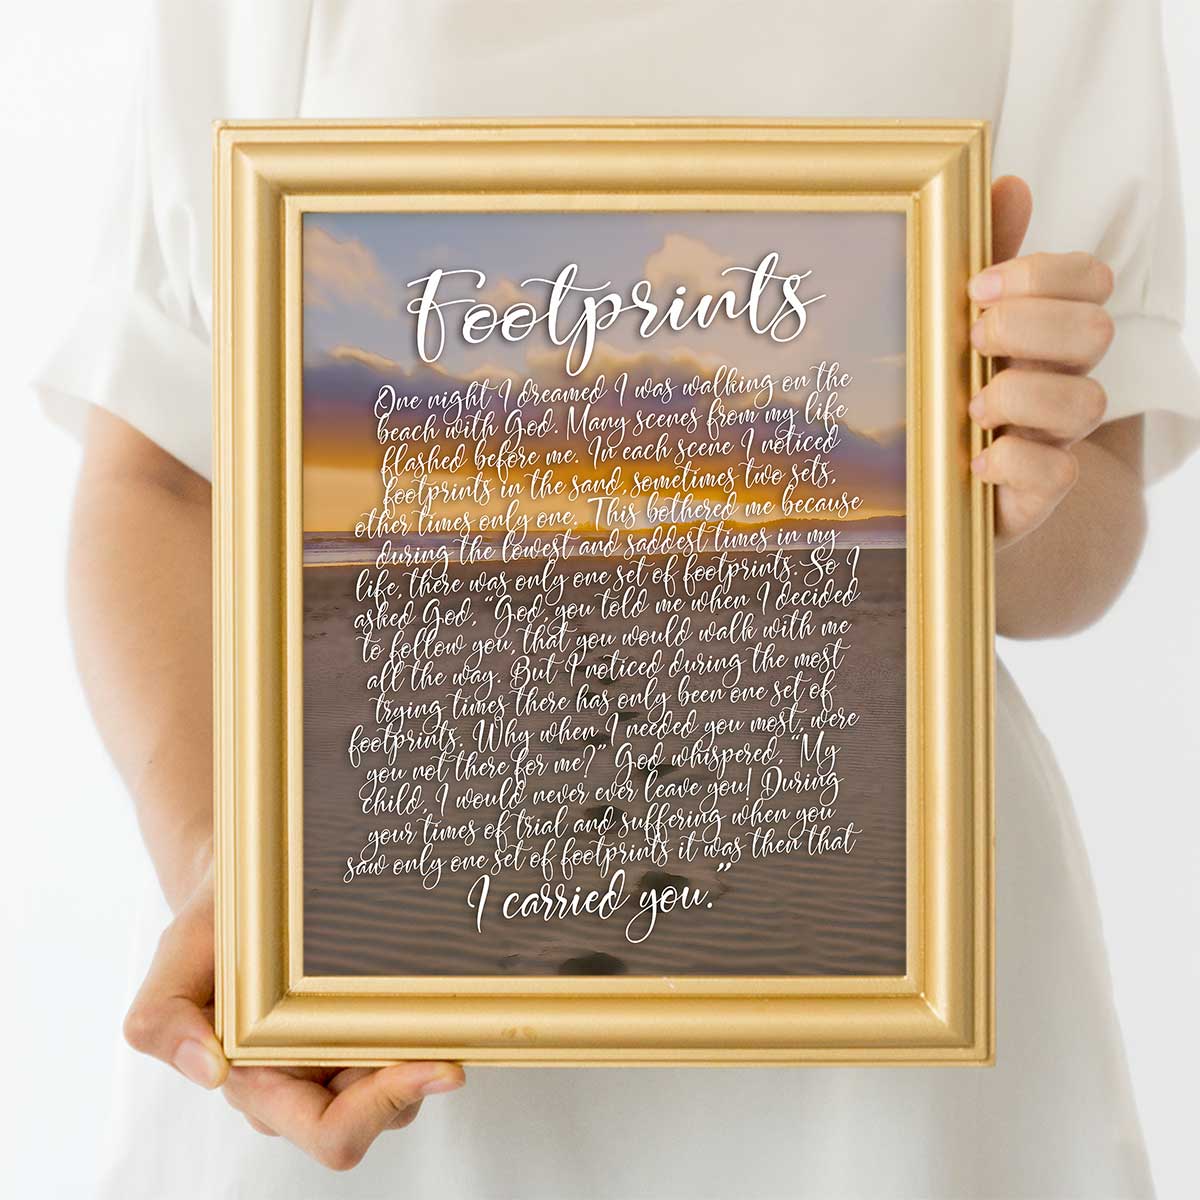 Footprints
One night I dreamed I was walking on the
beach with God. Many scenes from my life
flashed before me. In each scene I noticed
footprints in the sand, sometimes two sets,
other times only one. This bothered me because
during the lowest and saddest times in my
life, there was only one set of footprints. So I
asked God, "God, you told me when I decided
to follow you, that you would walk with me
all the way. But I noticed during the most
trying times there has only been one set of
footprints. Why when I needed you most, were
you not there for me?" God whispered, "My
child, I would never ever leave you! During
your times of trial and suffering when you
saw only one set of footprints it was then that
I carried you."